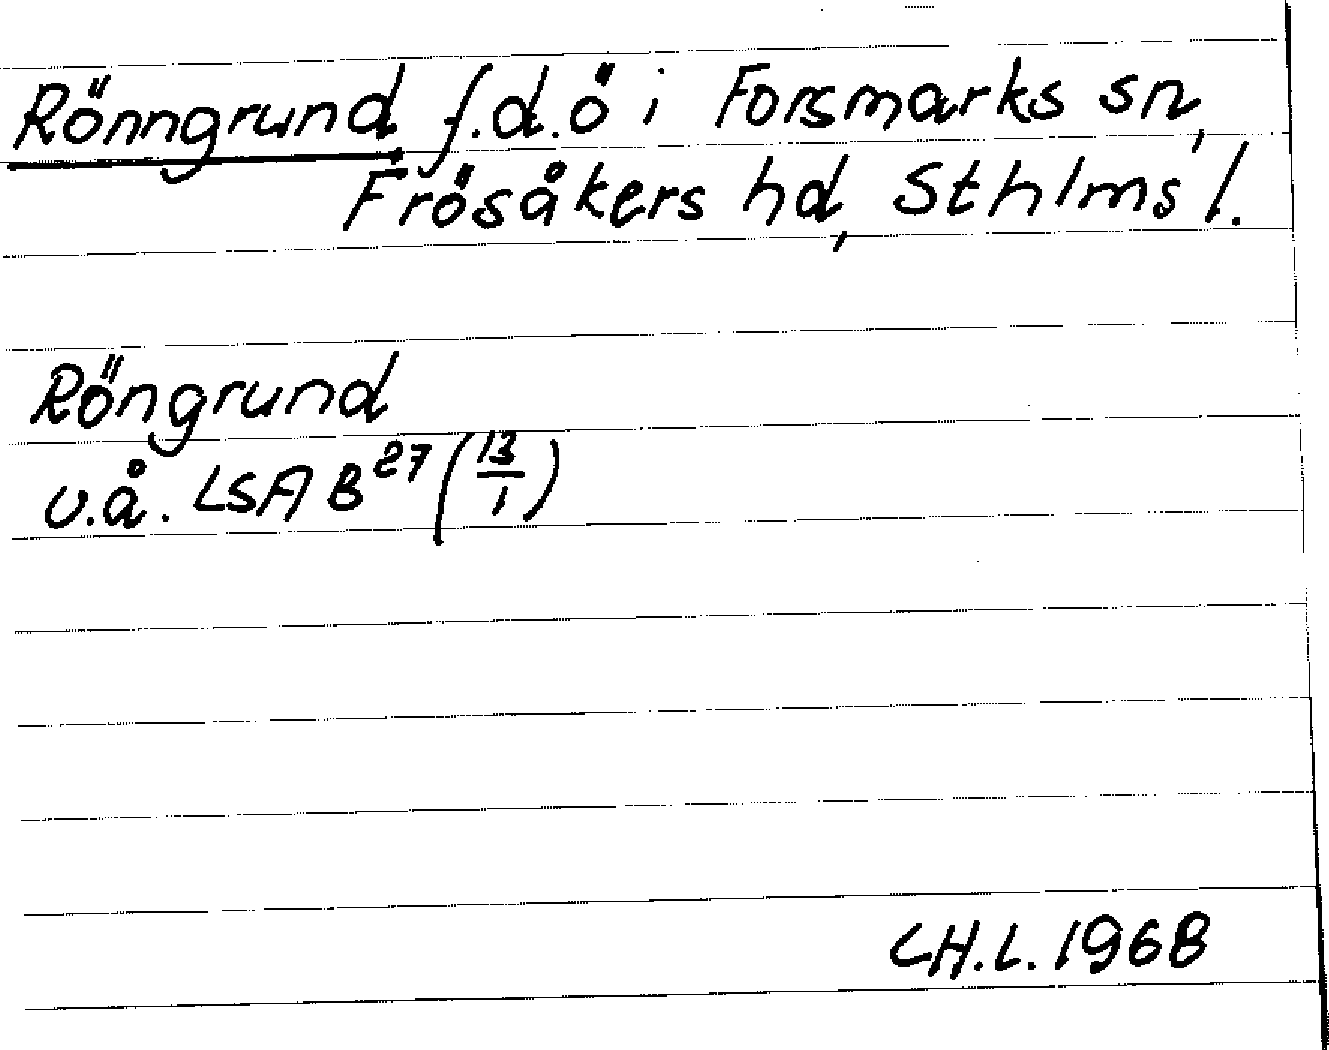 Rönngrund f.d.ö i Forsmarks sn,
Frösåkers hd, Sthlms l.
Röngrund
u.å. LSA B27 (13/1)
CH.L. 1968